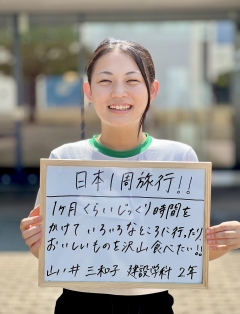 日本1周旅行!!
1ヶ月くらいじっくり時間を
かけていろいろなところに行ったり
おいしいものを沢山食べたい!!
山ノ井 三和子 建設学科 2年